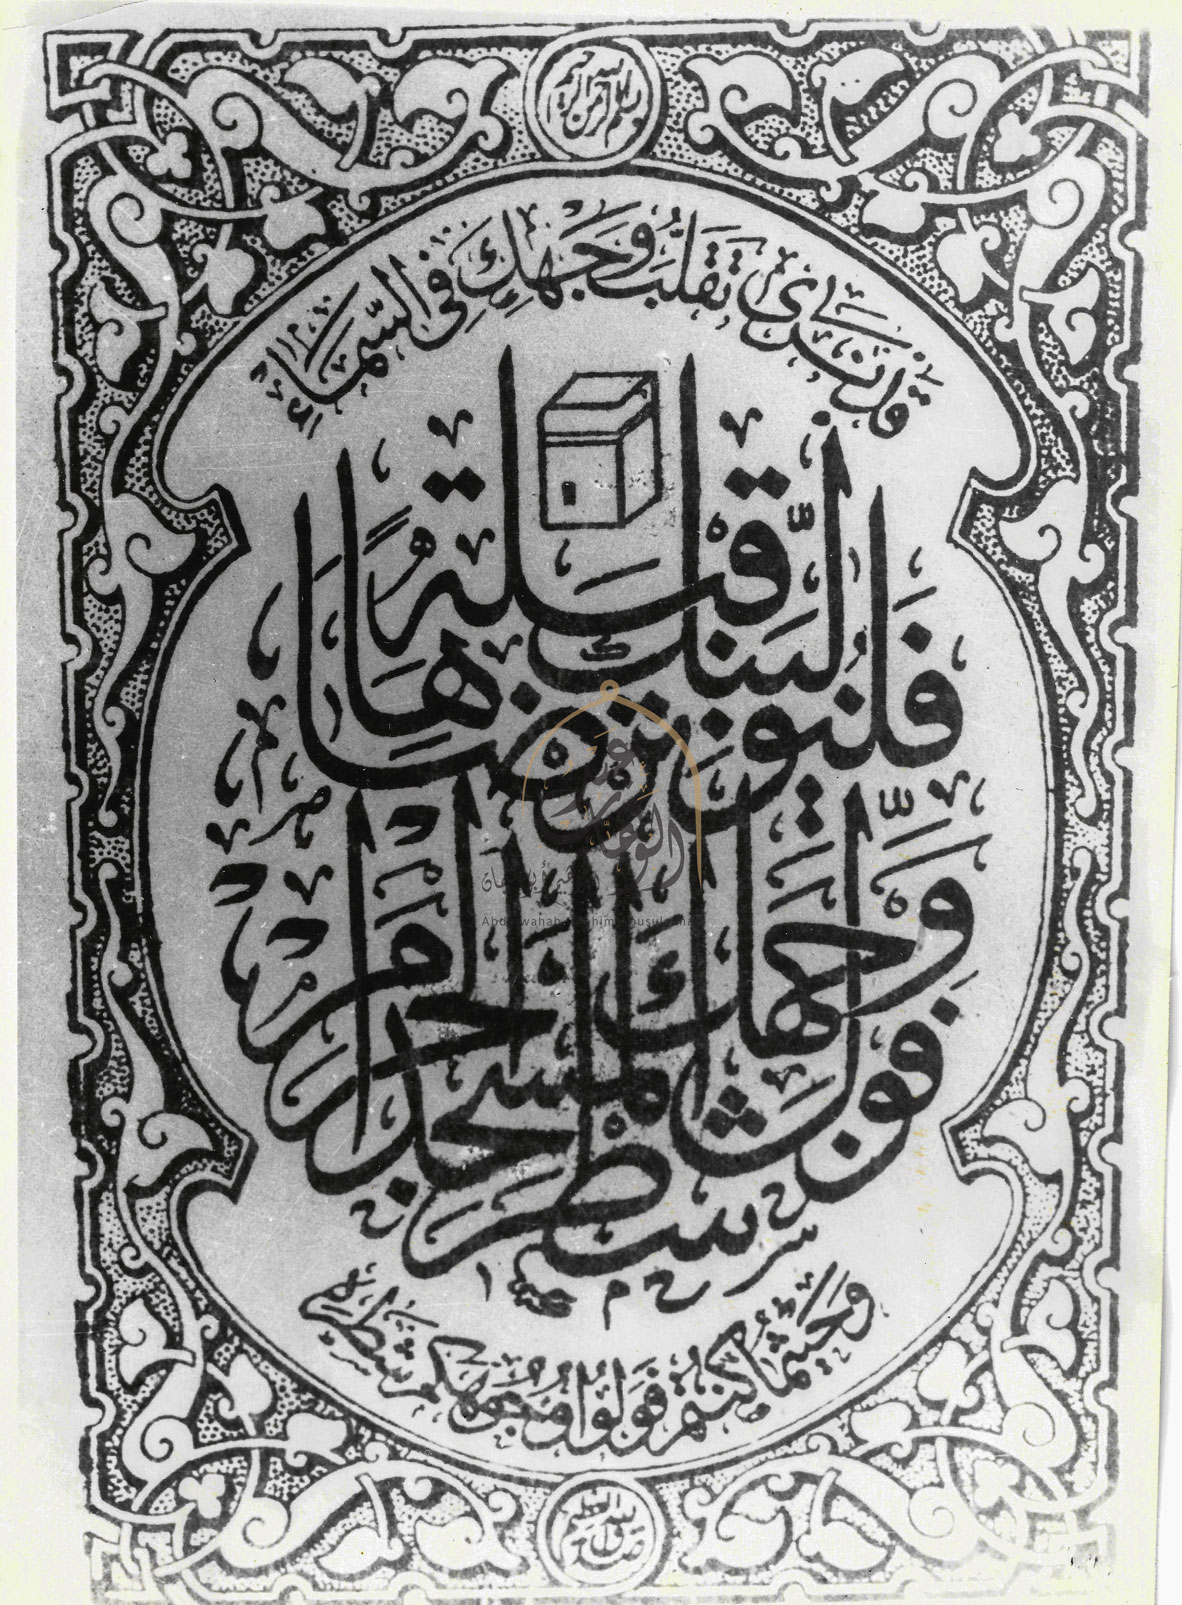 بسم الله الرحمن الرحيم
قَدْ نَرَىٰ تَقَلُّبَ وَجْهِكَ فِي السَّمَاءِ
فَلَنُوَلِّيَنَّكَ قِبْلَةً تَرْضَاهَا
فَوَلِّ وَجْهَكَ شَطْرَ الْمَسْجِدِ الْحَرَامِ
وَحَيْثُمَا كُنْتُمْ فَوَلُّوا وُجُوهَكُمْ شَطْرَهُ
صدق الله العظيم